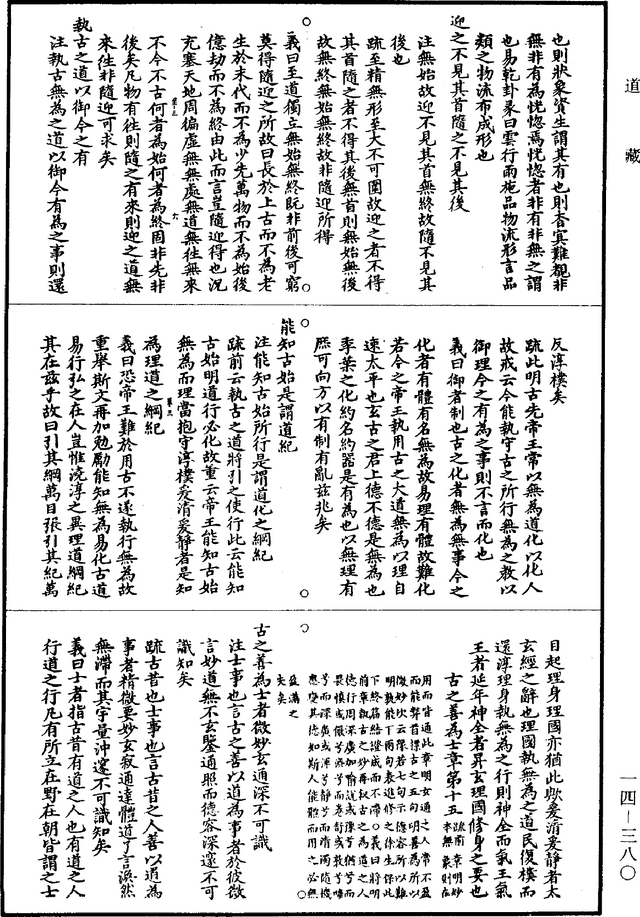 道藏
也則狀象資生謂其有也則杳冥難覩非
無非有為恍惚焉恍惚者非有非無之謂
也易乾卦彖曰雲行雨施品物流形言品
類之物流布成形也
迎之不見其首隨之不見其後
注無始故迎不見其首無終故隨不見其
後也
疏至精無形至大不可圍故迎之者不得
其首隨之者不得其後無首則無始無後
故無終無始無終故非隨迎所得
義曰至道獨立無始無終既非前後可窮
莫得隨迎之所故曰長於上古而不為老
生於末代而不為少先萬物而不為始後
億劫而不為終由此而言豈隨迎得也況
充塞天地周徧虛無無處無道無往無來
不今不古何者為始何者為終固非先非
後矣凡物有往則隨之有來則迎之道無
來往非隨迎可求矣
執古之道以御今之有
注執古無為之道以御今有為之事則還
反淳樸矣
疏此明古先帝王常以無為道化以化人
故戒云今能執守古之所行無為之教以
御理今之有為之事則不言而化也
義曰御者制也古之化者無為無事今之
化者有體有名無為故易理有體故難化
若今之帝王執用古之大道無為以理自
速太平也玄古之君上德不德是無為也
季葉之化約名約器是有為也以無理有
庶可向方以有制有亂茲兆矣
能知古始是謂道紀
注能知古始所行是謂道化之綱紀
疏前云執古之道將引之使行此云能知
古始明道行必化故重云帝王能知古始
無為而理當抱守淳樸爰清爰靜者是知
為理道之綱紀
義曰恐帝王難於用古不遂執行無為故
重舉斯文再加勉勵能知無為易化古道
易行弘之在人豈惟澆淳之異理道綱紀
其在茲乎故曰引其綱萬目張引其紀萬
目起理身理國亦猶此歟爰清爰靜者太
玄經之辭也理國執無為之道民復樸而
還淳理身執無為之行則神全而氣王氣
王者延年神全者昇玄理國修身之要也
古之善為士章第十五
古之善為士者微妙玄通深不可識
注士事也言古之善以道為事者於彼微
言妙道無不玄鑒通照而德容深邃不可
識知矣
疏古昔也士事也言古昔之人善以道為
事者精微要妙玄寂通達體道了言渙然
無滯而其宇量沖邃不可識知矣
義曰士者指古昔有道之人也有道之人
行道之行凡有所立在野在朝皆謂之士
一四—三八〇